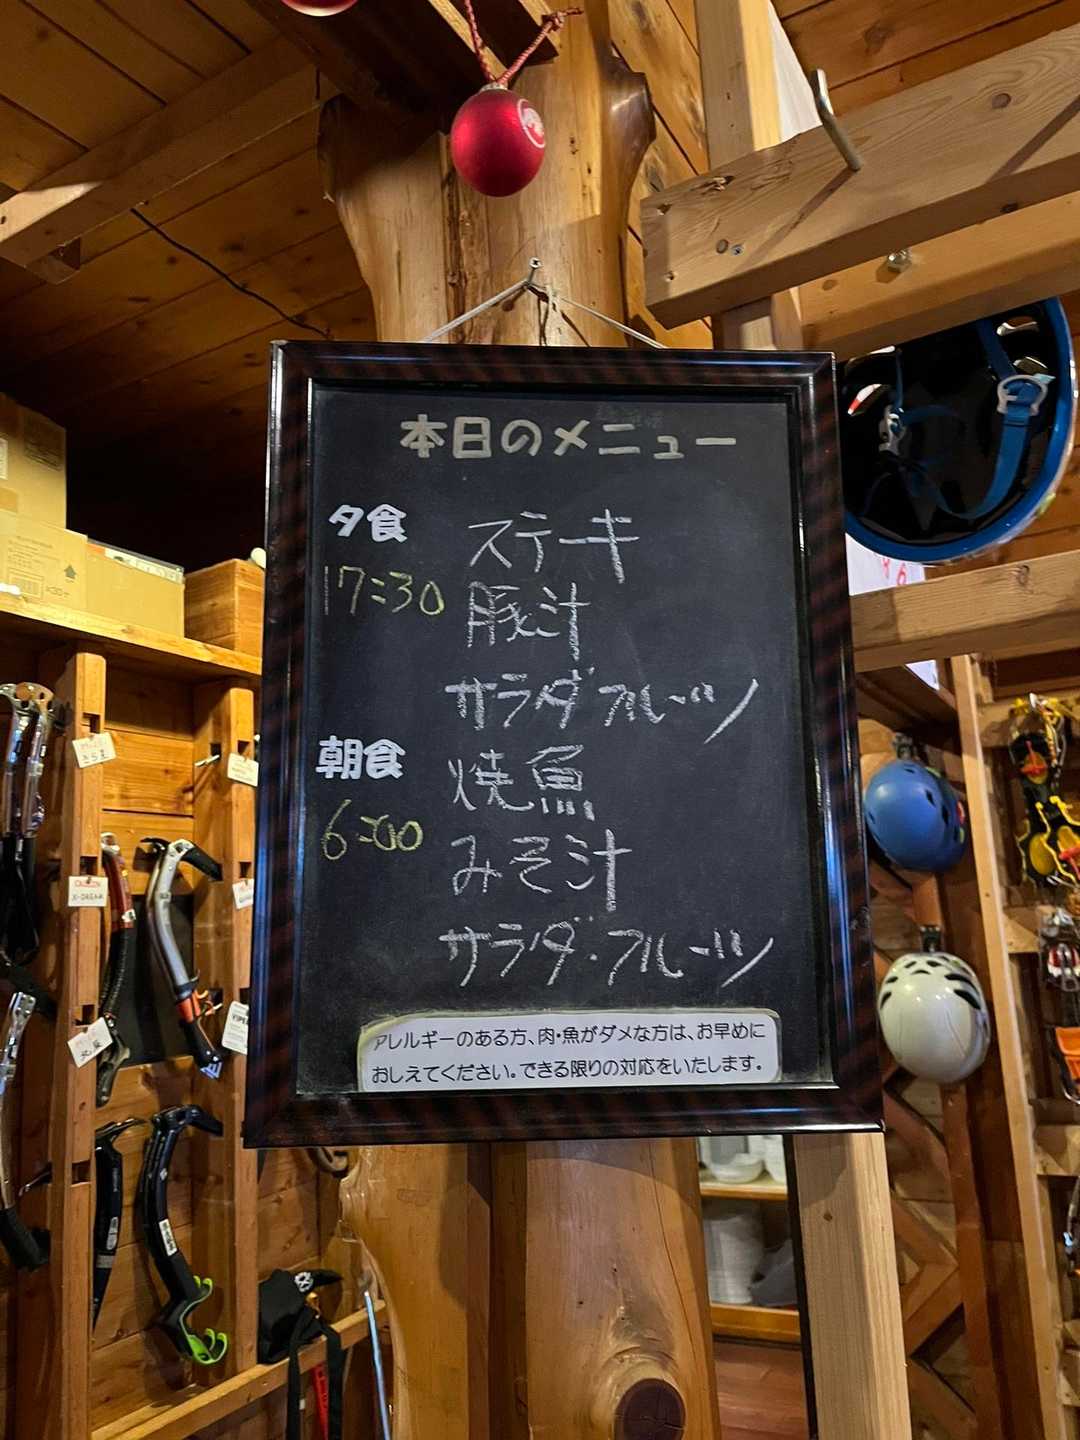 本日のメニュー
夕食
17:30
ステーキ
豚汁
サラダ フルーツ
朝食
6:00
焼魚
みそ汁
サラダ・フルーツ
アレルギーのある方、肉・魚がダメな方は、お早めに
おしえてください。できる限りの対応をいたします。
X-DREAM